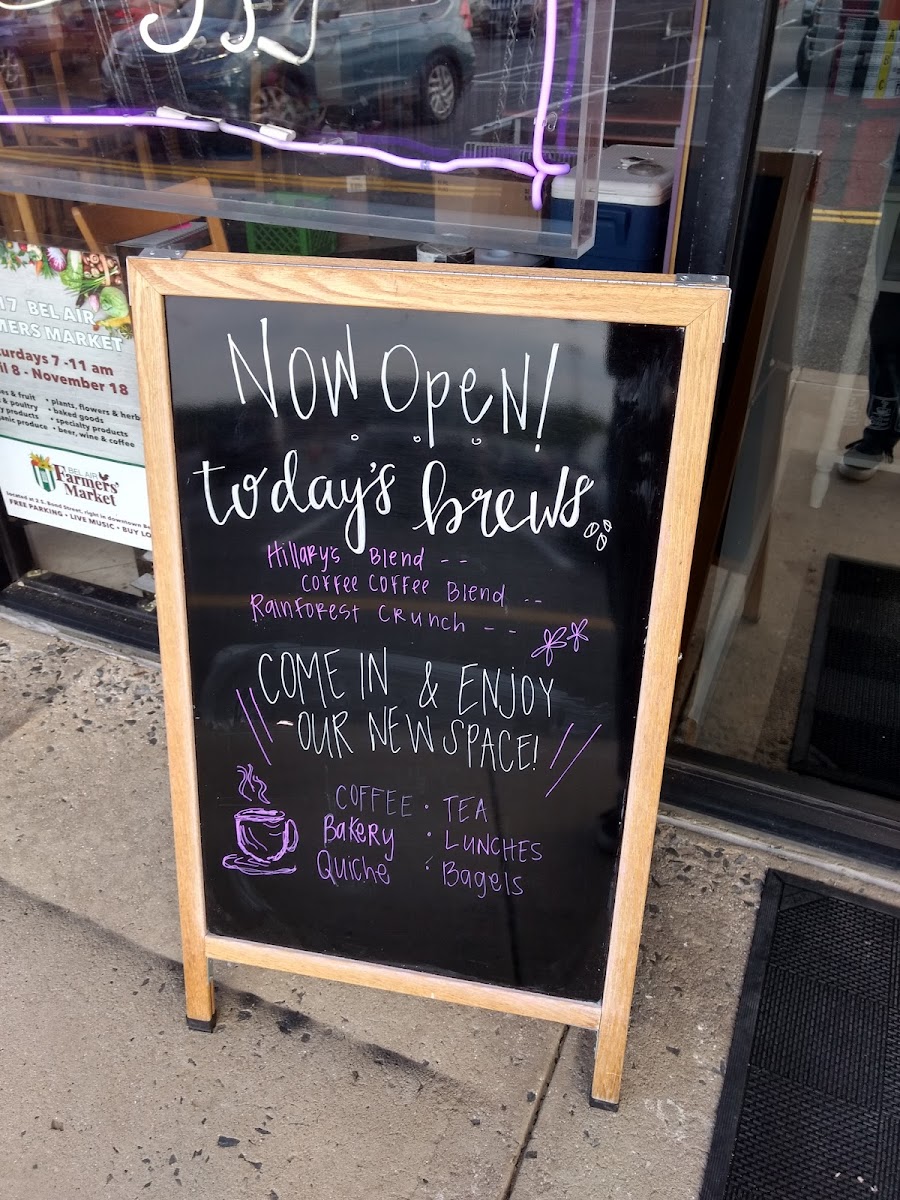 Now Open!
today's brews
Hillary's Blend --
Coffee Coffee Blend --
Rainforest Crunch --
COME IN & ENJOY
OUR NEW SPACE!
COFFEE · TEA
Bakery · LUNCHES
Quiche · Bagels
17 BEL AIR
MERS MARKET
turdays 7 -11 am
il 8 - November 18
es & fruit • plants, flowers & herb
& poultry • baked goods
y products • specialty products
anic produce • beer, wine & coffee
BEL AIR
Farmers'
Market
Located at 2 S. Bond Street, right in downtown Be
FREE PARKING • LIVE MUSIC • BUY LO